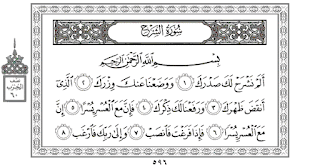 سُورَةُ الشَّرْحِ
بِسْمِ اللَّهِ الرَّحْمَٰنِ الرَّحِيمِ
أَلَمْ نَشْرَحْ لَكَ صَدْرَكَ ١ وَوَضَعْنَا عَنكَ وِزْرَكَ ٢ الَّذِي
أَنقَضَ ظَهْرَكَ ٣ وَرَفَعْنَا لَكَ ذِكْرَكَ ٤ فَإِنَّ مَعَ الْعُسْرِ يُسْرًا ٥ إِنَّ
مَعَ الْعُسْرِ يُسْرًا ٦ فَإِذَا فَرَغْتَ فَانصَبْ ٧ وَإِلَىٰ رَبِّكَ فَارْغَب ٨
٥٩٦
٦٠